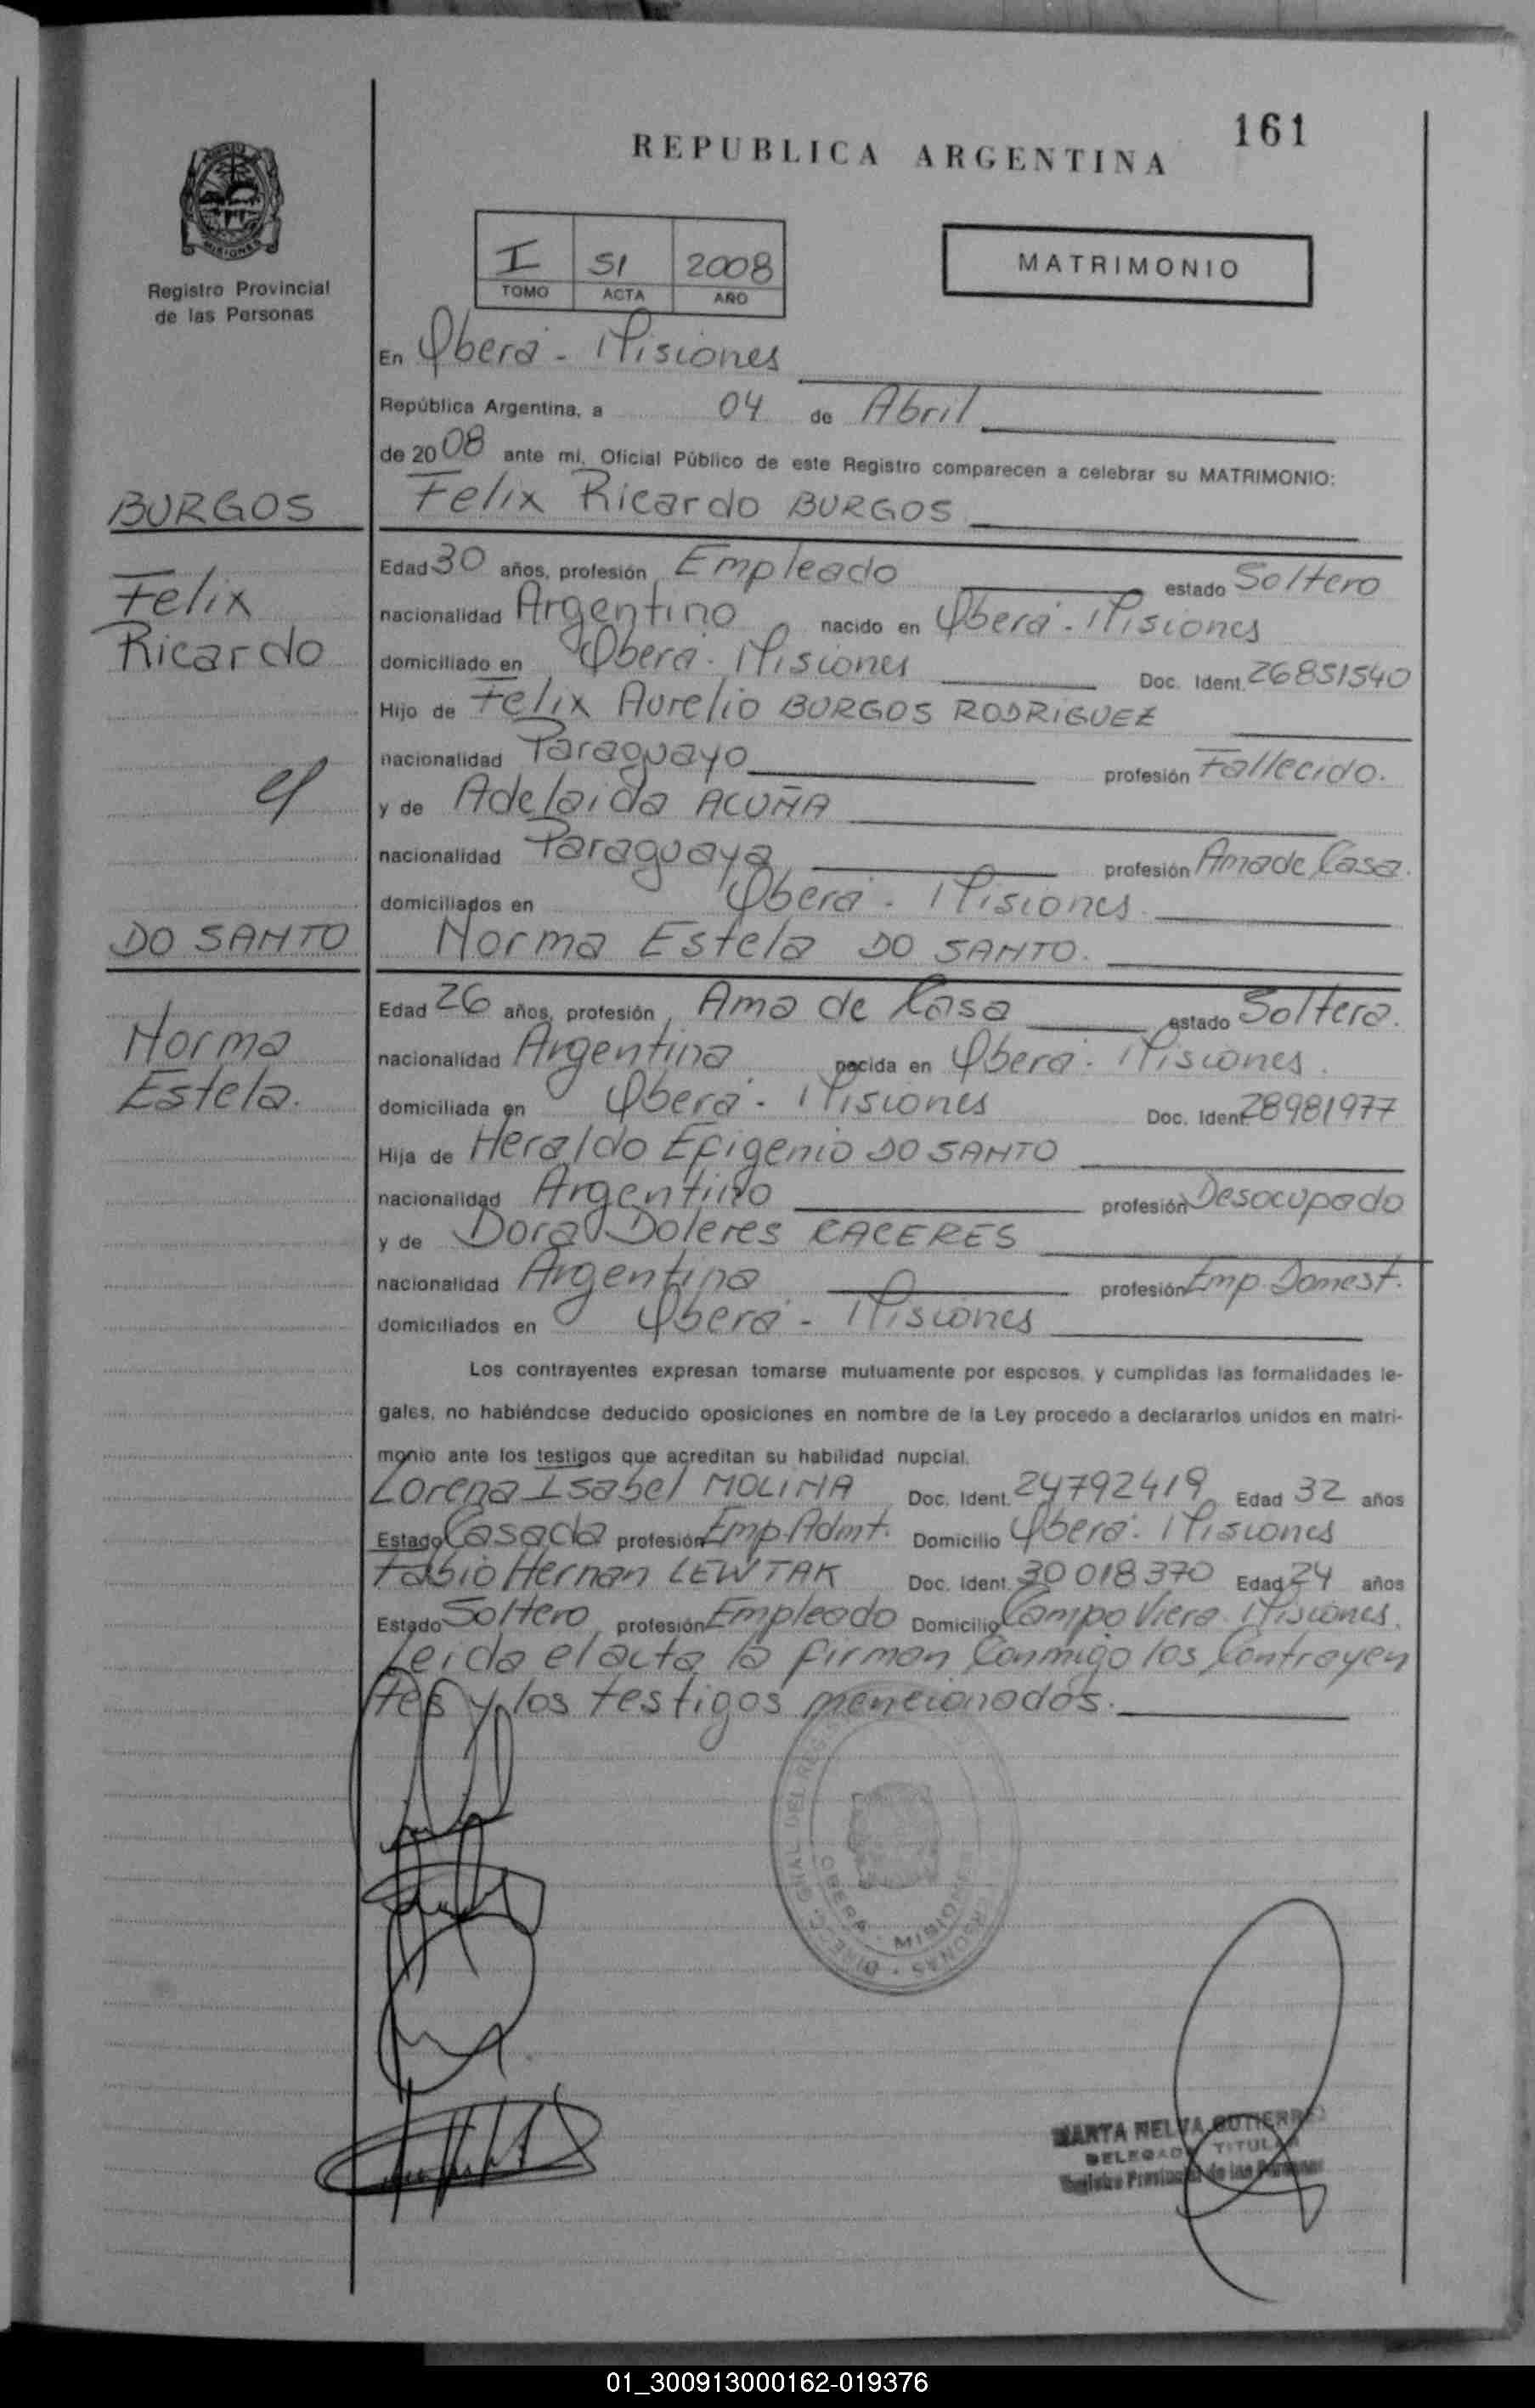 161
REPUBLICA ARGENTINA
MISIONES
Registro Provincial
de las Personas
I 51 2008
TOMO ACTA AÑO
MATRIMONIO
En Oberá - Misiones
República Argentina, a 04 de Abril
de 2008 ante mi, Oficial Público de este Registro comparecen a celebrar su MATRIMONIO:
BURGOS
Felix Ricardo BURGOS
Felix
Ricardo
Edad 30 años, profesión Empleado estado Soltero
nacionalidad Argentino nacido en Oberá - Misiones
domiciliado en Oberá - Misiones Doc. Ident. 26851540
Hijo de Felix Aurelio BURGOS RODRIGUEZ
nacionalidad Paraguayo profesión Fallecido.
y de Adelaida ACUÑA
nacionalidad Paraguaya profesión Ama de Casa.
domiciliados en Oberá - Misiones
DO SANTO
Norma Estela DO SANTO.
Norma
Estela.
Edad 26 años, profesión Ama de Casa estado Soltera.
nacionalidad Argentina nacida en Oberá - Misiones.
domiciliada en Oberá - Misiones Doc. Ident. 28981977
Hija de Heraldo Efigenio DO SANTO
nacionalidad Argentino profesión Desocupado
y de Dora Doleres CACERES
nacionalidad Argentina profesión Emp. Domest.
domiciliados en Oberá - Misiones
Los contrayentes expresan tomarse mutuamente por esposos, y cumplidas las formalidades le-
gales, no habiéndose deducido oposiciones en nombre de la Ley procedo a declararlos unidos en matri-
monio ante los testigos que acreditan su habilidad nupcial.
Lorena Isabel MOLINA Doc. Ident. 24792419 Edad 32 años
Estado Casada profesión Emp. Admt. Domicilio Oberá - Misiones
Fabio Hernan LEWTAK Doc. Ident. 30018370 Edad 24 años
Estado Soltero profesión Empleado Domicilio Campo Viera Misiones.
Leida el acta la firman Conmigo los Contrayen
tes y los testigos mencionados.
OBERA - MISIONES
MARTA NELVA GUTIERREZ
DELEGADA TITULAR
Registro Provincial de las Personas
01_300913000162-019376